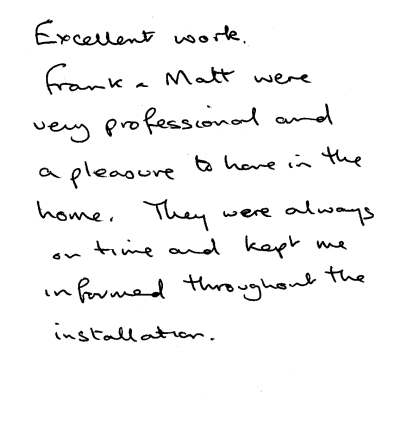 Excellent work.
Frank & Matt were
very professional and
a pleasure to have in the
home. They were always
on time and kept me
informed throughout the
installation.